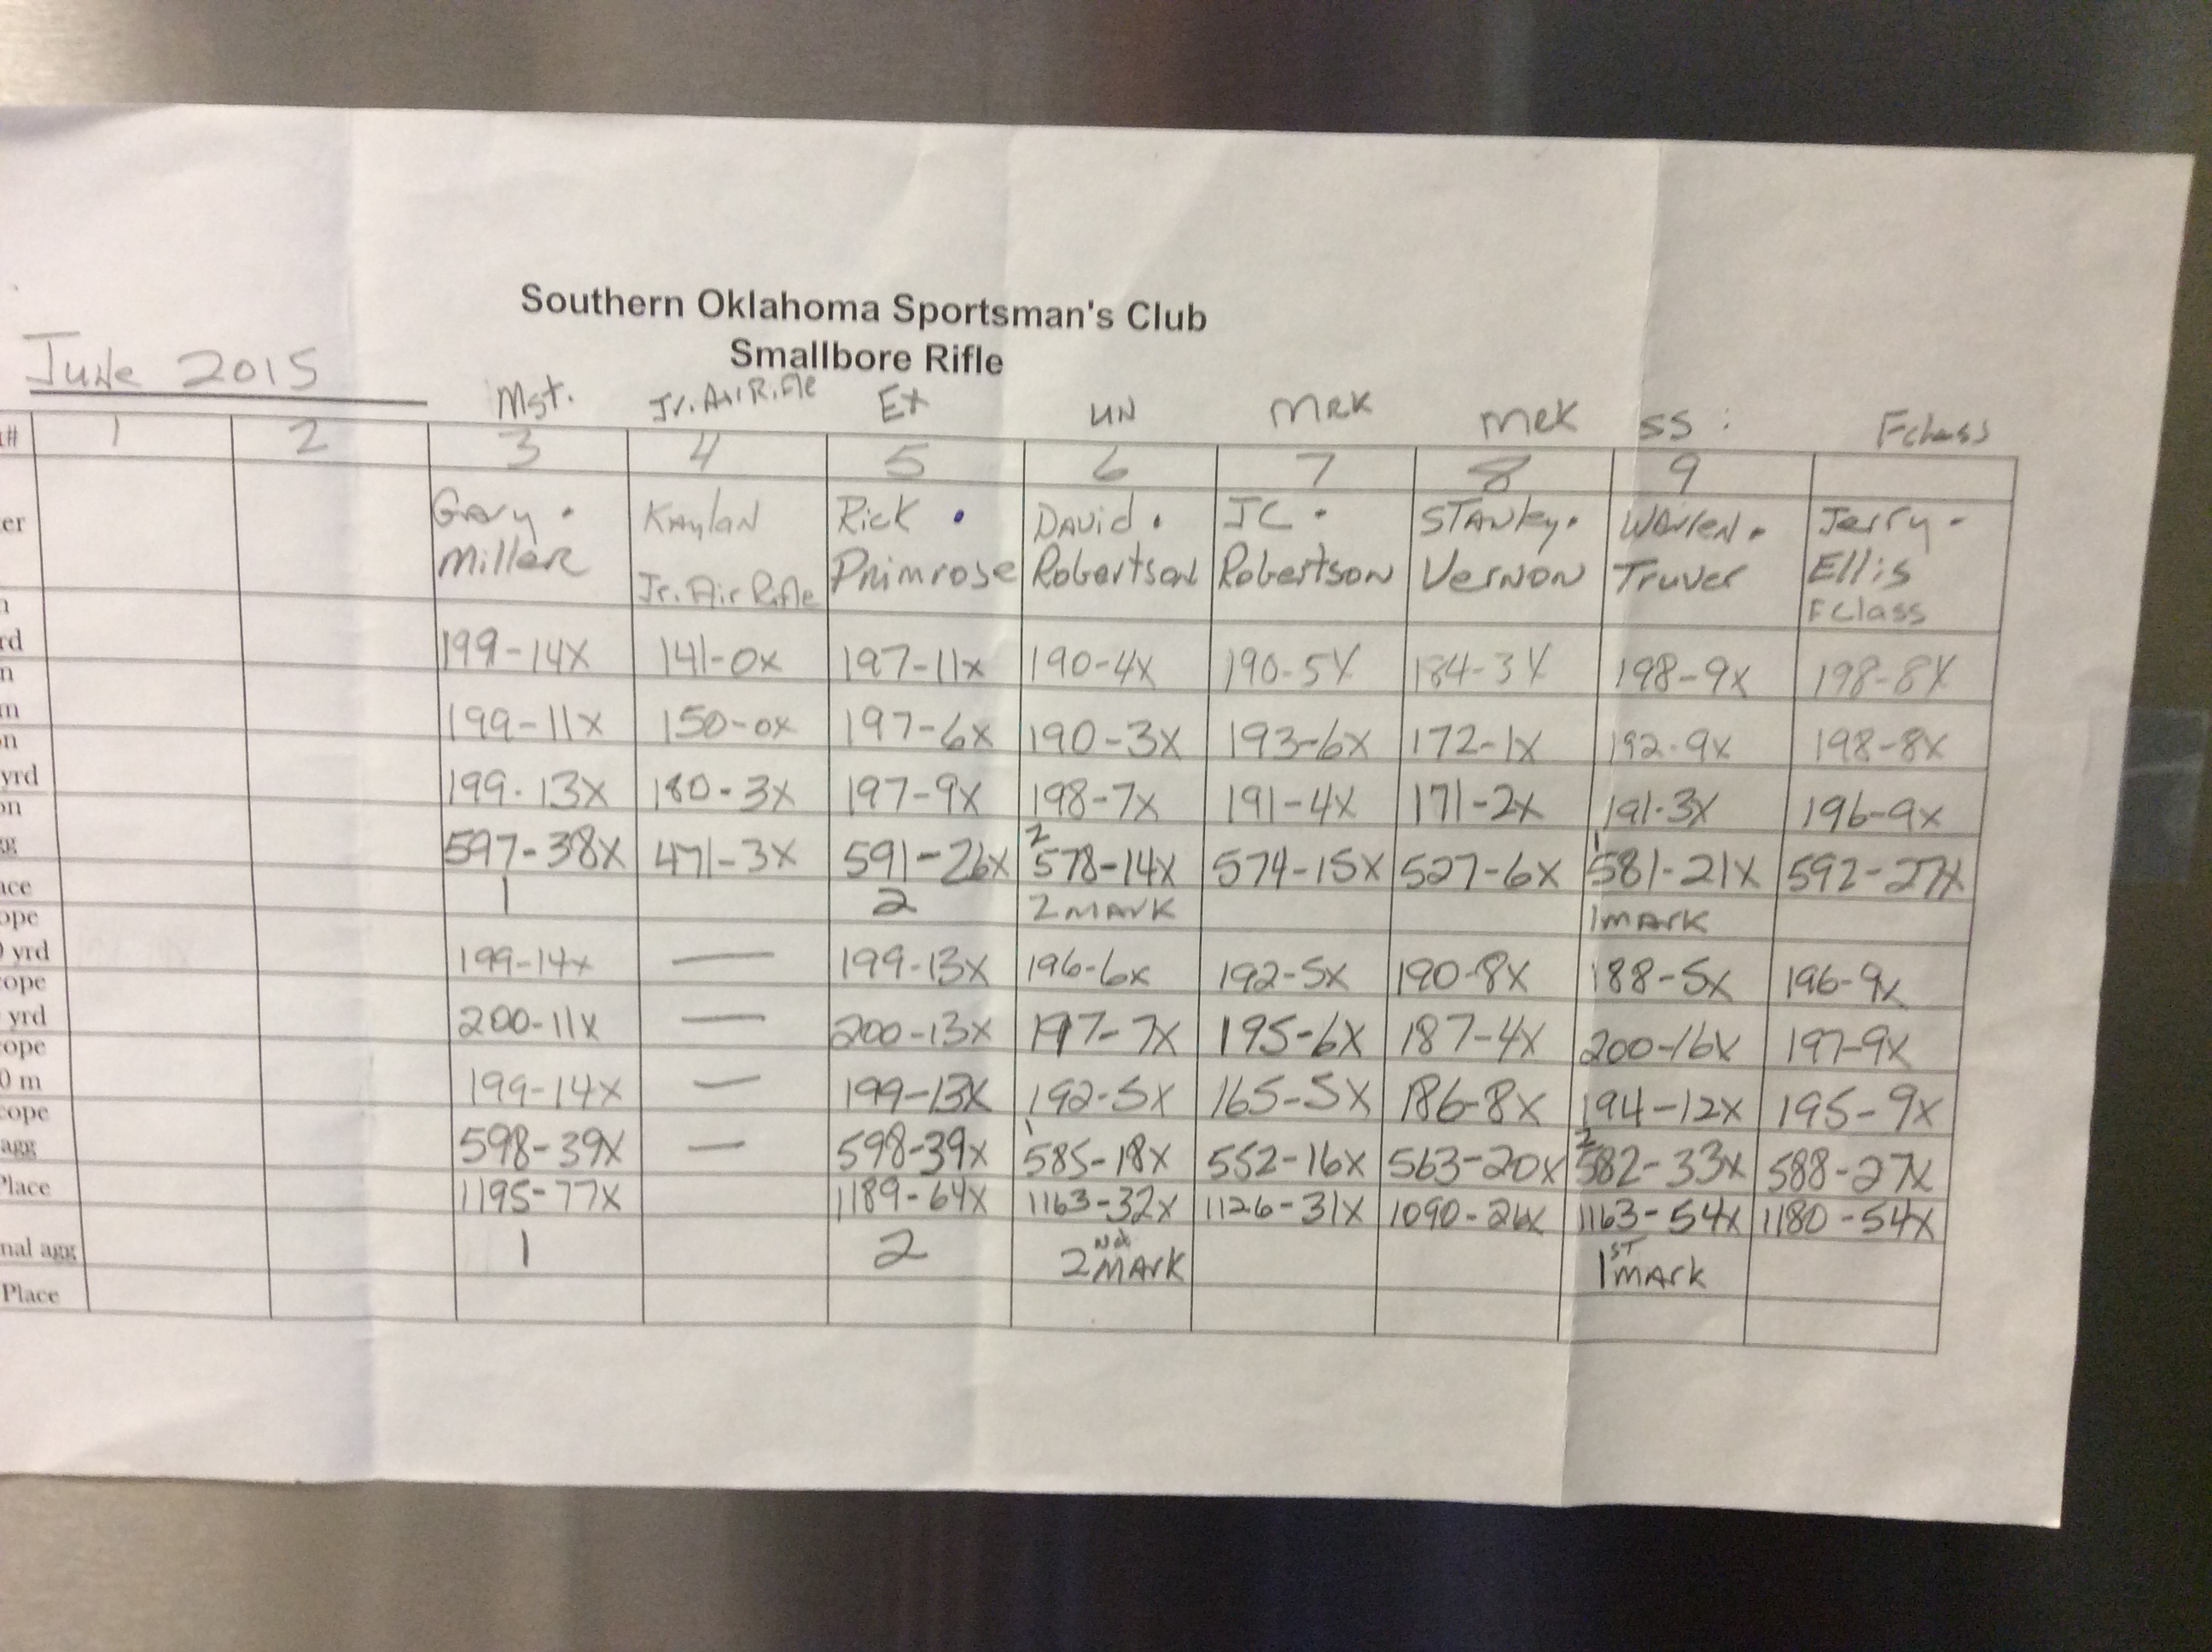 Southern Oklahoma Sportsman's Club
Smallbore Rifle
June 2015
Mst. Jr. Air Rifle Ex UN MRK MRK SS : Fclass
# 1 2 3 4 5 6 7 8 9
er Gary · Kaylan Rick · David · JC · Stanley · Warren · Jerry -
Miller Jr. Air Rifle Primrose Robertson Robertson Vernon Truver Ellis
Fclass
rd 199-14x 141-0x 197-11x 190-4x 190-5X 184-3X 198-9x 198-8X
n
m 199-11x 150-0x 197-6x 190-3x 193-6x 172-1x 192-9x 198-8x
on
yrd 199-13x 180-3x 197-9x 198-7x 191-4x 171-2x 191-3x 196-9x
on
2 1
gg 597-38x 471-3x 591-26x 578-14x 574-15x 527-6x 581-21x 592-27x
ace 1 2 2 MARK 1 MARK
ope
yrd 199-14x — 199-13x 196-6x 192-5x 190-8x 188-5x 196-9x
ope
yrd 200-11x — 200-13x 197-7x 195-6x 187-4x 200-16x 197-9x
ope
0 m 199-14x — 199-13x 192-5x 165-5x 186-8x 194-12x 195-9x
cope
1 2
agg 598-39x — 598-39x 585-18x 552-16x 563-20x 582-33x 588-27x
Place 1195-77x 1189-64x 1163-32x 1126-31x 1090-26x 1163-54x 1180-54x
nal agg 1 2 2nd MARK 1ST MARK
Place